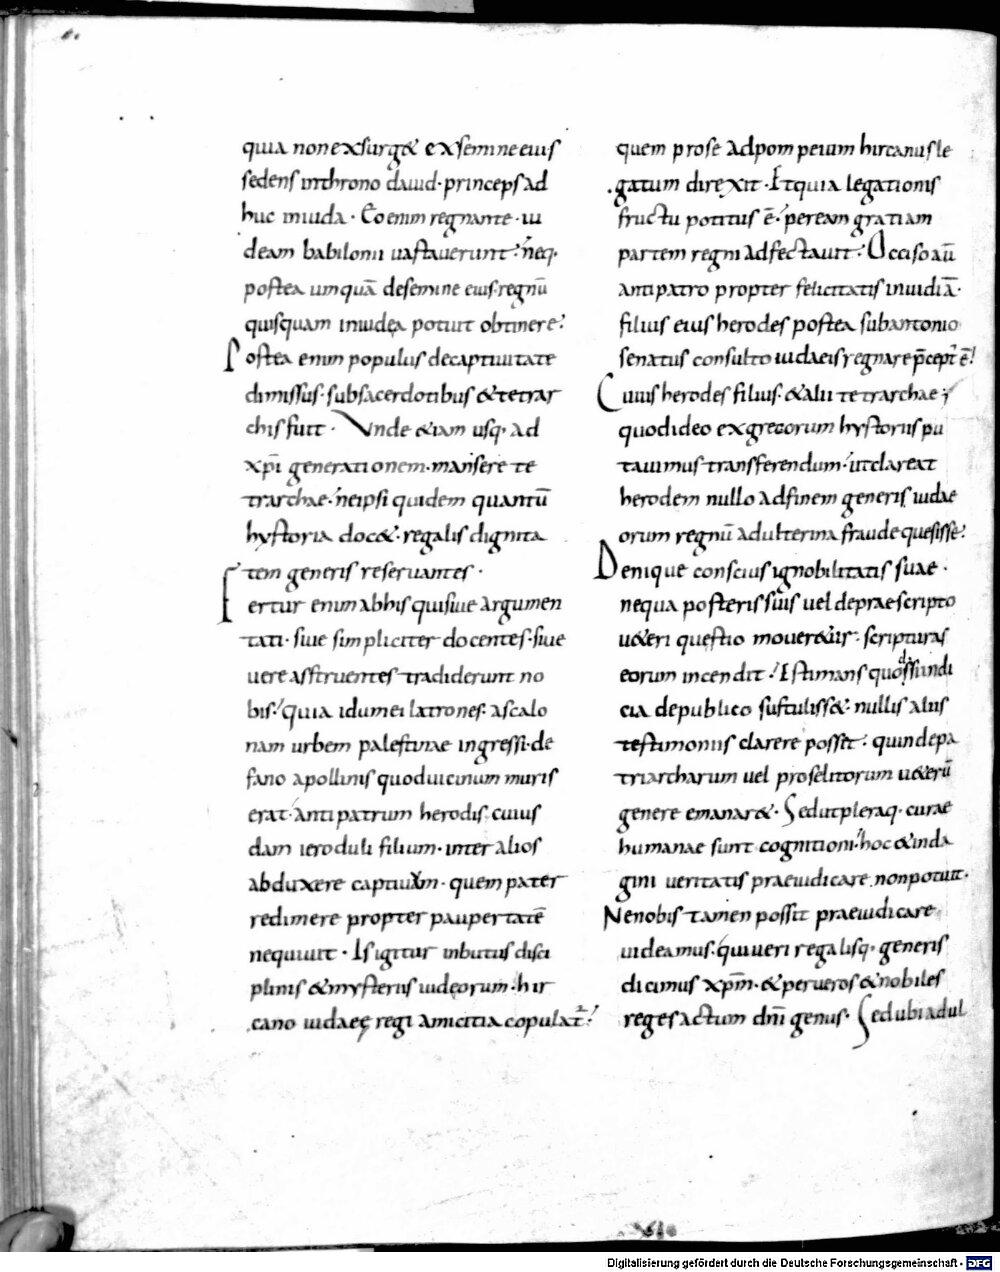 quia non exsurg& exsemine eius
sedens inthrono dauid· princeps ad
huc inuida· Eo enim regnante· iu
deam babilonii uastauerunt· neq·
postea umquā desemine eius regnū
quisquam iniudęa potuit obtinere·
Postea enim populus decaptiuitate
dimissus· subsacerdotibus &tetrar
chis fuit· Vnde &iam usq· ad
xp̄i generationem· mansere te
trarchae· neipsi quidem quantū
hystoria doc&· regalis dignita
tem generis reseruantes·
Fertur enim abhis quisiue argumen
tati· siue simpliciter docentes· siue
uere asstruentes tradiderunt no
bis· quia idumei latrones· ascalo
nam urbem palestinae ingressi· de
fano apollinis quod uicinum muris
erat· antipatrum herodis cuius
dam ieroduli filium· inter alios
abduxere captiuum· quem pater
redimere propter paupertatē
nequiuit· Is igitur inbutus disci
plinis &mysteriis iudęorum· hir
cano iudaeę regi amicitia copulat̄·
quem prose adpompeium hircanus le
gatum direxit· Etquia legationis
fructu potitus ē· peream gratiam
partem regni adfectauit· Occiso aū
antipatro propter felicitatis inuidiā·
filius eius herodes postea subantonio
senatus consulto iudaeis regnare p̄cept̄ ē·
Cuius herodes filius· &alii tetrarchae;
quodideo exgrecorum hystoriis pu
tauimus transferendum· utclareat
herodem nullo adfinem generis iudae
orum regnū adulterina fraude quesisse·
Denique conscius ignobilitatis suae·
nequa posteris suis uel depraescripto
u&eri questio mouer&ur· scripturas
eorum incendit· Estimans quodssiindi
cia depublico sustuliss&· nullis aliis
testimoniis clarere posset· quin depa
triarcharum uel proselitorum u&erū
genere emanar&· Sedutpleraq· curae
humanae sunt cogitationi· hoc &inda
gini ueritatis praeiudicare nonpotuit·
Nenobis tamen possit praeiudicare
uideamus· quiueri regalisq· generis
dicimus xp̄m· &perueros &nobiles
reges actum dn̄i genus· Sed ubi adul
Digitalisierung gefördert durch die Deutsche Forschungsgemeinschaft - DFG